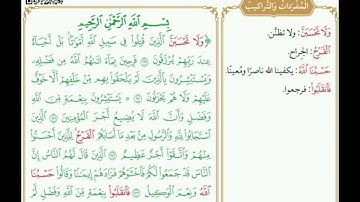 المفردات والتراكيب
وَلَا تَحْسَبَنَّ: ولا تظنَّن.
القَرْحُ: الجراح.
حَسْبُنَا اللَّهُ: يكفينا الله ناصرًا ومُعينًا.
فَانْقَلَبُوا: فرجعوا.
بِسْمِ اللَّهِ الرَّحْمَٰنِ الرَّحِيمِ
﴿وَلَا تَحْسَبَنَّ الَّذِينَ قُتِلُوا فِي سَبِيلِ اللَّهِ أَمْوَاتًا بَلْ أَحْيَاءٌ
عِنْدَ رَبِّهِمْ يُرْزَقُونَ فَرِحِينَ بِمَا آتَاهُمُ اللَّهُ مِنْ فَضْلِهِ
وَيَسْتَبْشِرُونَ بِالَّذِينَ لَمْ يَلْحَقُوا بِهِمْ مِنْ خَلْفِهِمْ أَلَّا خَوْفٌ
عَلَيْهِمْ وَلَا هُمْ يَحْزَنُونَ يَسْتَبْشِرُونَ بِنِعْمَةٍ مِنَ اللَّهِ
وَفَضْلٍ وَأَنَّ اللَّهَ لَا يُضِيعُ أَجْرَ الْمُؤْمِنِينَ الَّذِينَ
اسْتَجَابُوا لِلَّهِ وَالرَّسُولِ مِنْ بَعْدِ مَا أَصَابَهُمُ الْقَرْحُ لِلَّذِينَ
أَحْسَنُوا مِنْهُمْ وَاتَّقَوْا أَجْرٌ عَظِيمٌ الَّذِينَ قَالَ لَهُمُ النَّاسُ إِنَّ
النَّاسَ قَدْ جَمَعُوا لَكُمْ فَاخْشَوْهُمْ فَزَادَهُمْ إِيمَانًا وَقَالُوا حَسْبُنَا
اللَّهُ وَنِعْمَ الْوَكِيلُ فَانْقَلَبُوا بِنِعْمَةٍ مِنَ اللَّهِ وَفَضْلٍ لَمْ